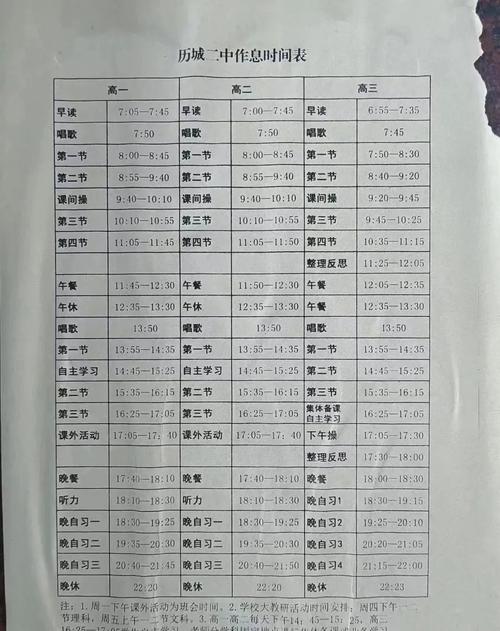 历城二中作息时间表
高一 高二 高三
早读 7:05—7:45 早读 7:00—7:45 早读 6:55—7:35
唱歌 7:50 唱歌 7:50 唱歌 7:45
第一节 8:00—8:45 第一节 8:00—8:45 第一节 7:50—8:30
第二节 8:55—9:40 第二节 8:55—9:40 第二节 8:40—9:20
课间操 9:40—10:10 课间操 9:40—10:10 课间操 9:20—9:45
第三节 10:10—10:55 第三节 10:10—10:55 第三节 9:45—10:25
第四节 11:05—11:45 第四节 11:05—11:50 第四节 10:35—11:15
整理反思 11:25—12:05
午餐 11:45—12:30 午餐 11:50—12:30 午餐 12:05—12:30
午休 12:35—13:30 午休 12:35—13:30 午休 12:35—13:30
唱歌 13:50 唱歌 13:50 唱歌 13:50
第一节 13:55—14:35 第一节 13:55—14:35 第一节 13:55—14:35
自主学习 14:45—15:25 自主学习 14:45—15:25 第二节 14:45—15:25
第二节 15:35—16:15 第二节 15:35—16:15 第三节 15:35—16:15
第三节 16:25—17:05 第三节 16:25—17:05 集体备课 自主学习 16:25—17:05
课外活动 17:05—17:40 课外活动 17:05—17:40 下午操 17:05—17:30
整理反思 17:30—18:00
晚餐 17:40—18:10 晚餐 17:40—18:10 晚餐 18:00—18:30
听力 18:10—18:30 听力 18:10—18:30 晚自习1 18:30—19:15
晚自习一 18:30—19:25 晚自习一 18:30—19:25 晚自习2 19:25—20:10
晚自习二 19:35—20:30 晚自习二 19:35—20:30 晚自习3 20:20—21:05
晚自习三 20:40—21:45 晚自习三 20:40—21:45 晚自习4 21:15—22:00
晚休 22:20 晚休 22:20 晚休 22:23
注：1.周一下午课外活动为班会时间。2.学校大教研活动时间安排：周四下午一、
节理科，周五上午一二节文科。3.高一高二每天下午14：45—15：25，高二